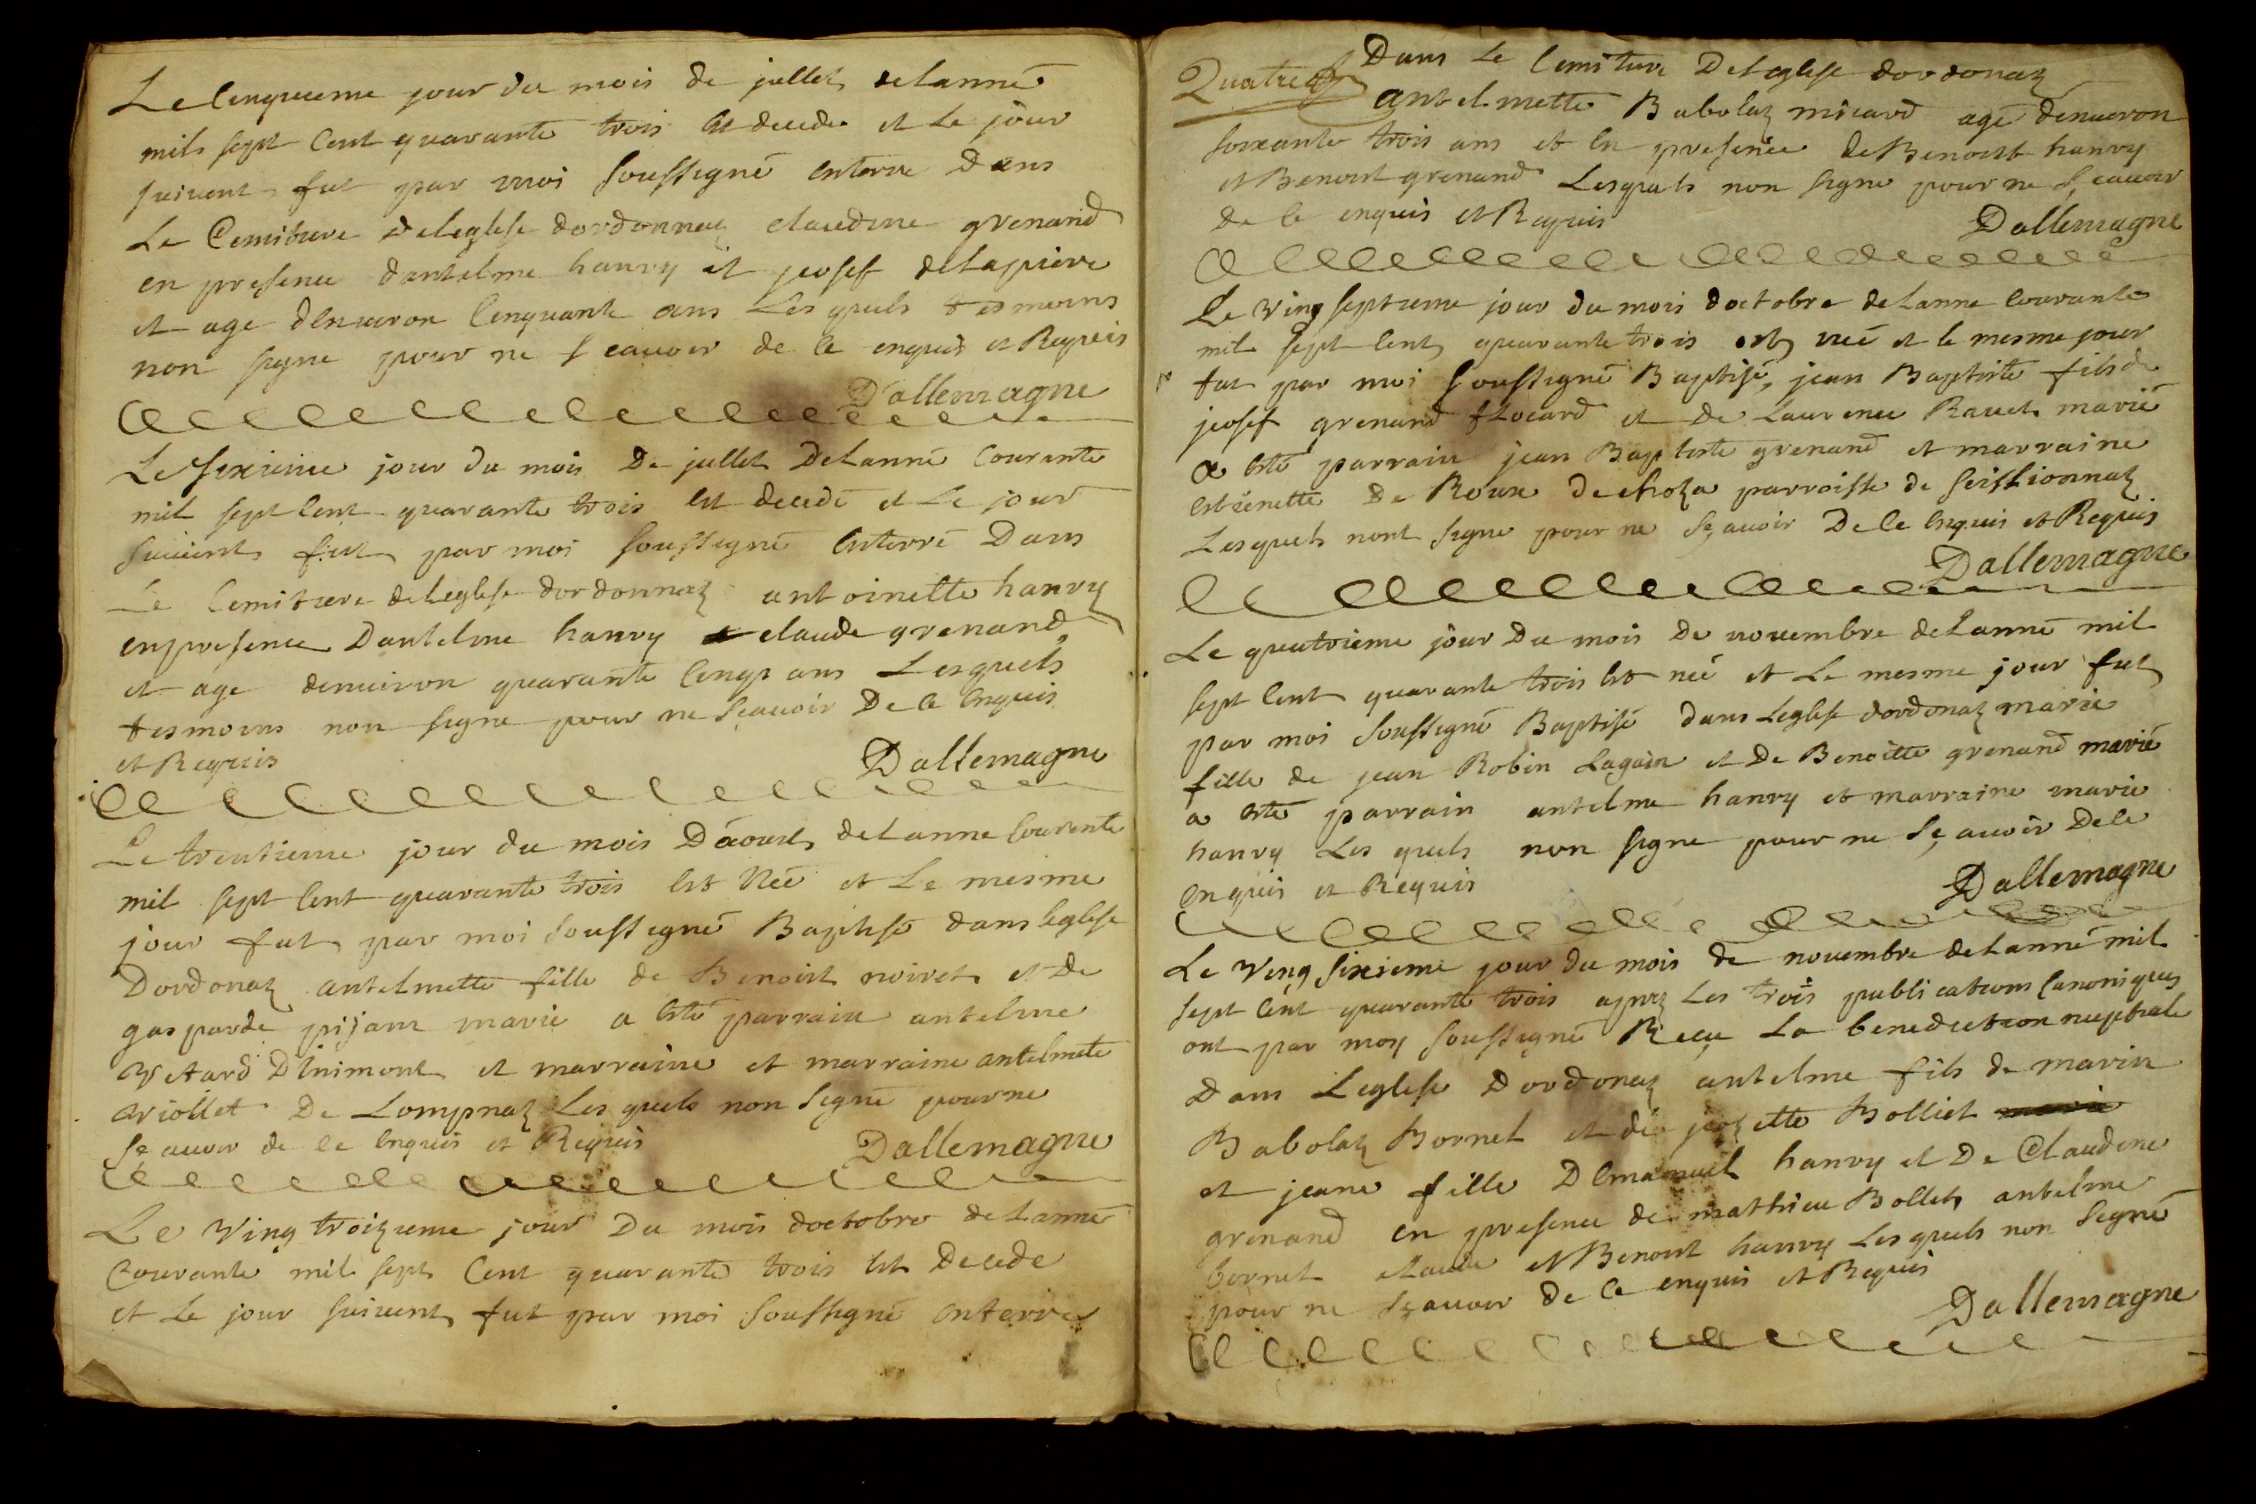 Le Cenquieme jour du mois de jullet de Lanné
mils sept Cent quarante trois est decede et Le jour
suivent fut par moi soussigné enterre dans
Le Cemitiere de Leglise dordonnaz claudine grenand
en presence dantelme hanry et josef delapierre
et age denviron Cenquante ans Les quels tesmoins
non signe pour ne sçauoir de ce enquis et Requis
Dallemagne
Le sixieme jour du mois De jullet De Lanné Courante
mil sept Cent quarante trois est decede et Le jour
suiuent fut par moi soussigné enterré Dans
Le Cemitiere de Leglise dordonnaz antoinette hanry
en presence Dantelme hanry et claude grenand
et age denuiron quarante Cenq ans Lesquels
tesmoins non signe pour ne sçauoir De ce Enquis
et Requis
Dallemagne
Le trentieme jour du mois Daoust de Lanne Courente
mil sept Cent quarante trois est Née et Le mesme
jour fut par moi soussigné Baptisé dans leglise
Dordonaz antelmette fille de Benoist noiret et De
gasparde pijam marié a esté parrain antelme
Vettard Dinimont et marraine et marraine antelmete
Griollet De Lompnaz Les quels non Signé pour ne
sçauoir de ce Enquis et Requis
Dallemagne
Le Ving troizieme jour Du mois doctobre de Lanné
Courante mil sept Cent quarante trois est Decede
et Le jour suiuent fut par moi soussigné enterre
Quatre
Dans Le Cemitiere De Leglise dordonaz
antelmette Babolaz micard agé denuiron
soixante trois ans et en presence de Benoist hanry
et Benoist grenand Lesquels non signe pour ne sçauoir
de ce enquis et Requis
Dallemagne
Le Ving septieme jour du mois doctobre de Lanne Courante
mil sept Cent quarante trois est néé et le mesme jour
fut par moi soussigné Baptisé jean Baptiste fils de
joosef grenand flocard et de Laurence Rauet marié
a esté parrain jean Baptiste grenand et marraine
Estienette De Roux de choza parroisse de seillionnaz
Lesquels nont signe pour ne sçauoir De Ce enquis et Requis
Dallemagne
Le quatrieme jour Du mois De nouembre de Lanné mil
sept Cent quarante trois est néé et Le mesme jour fut
par moi soussigné Baptisé dans Leglise dordonaz marie
fille de jean Robin Lagain et De Benoitte grenand marié
a esté parrain antelme hanry et marraine marie
hanry Les quels non signe pour ne Sçauoir De Ce
enquis et Requis
Dallemagne
Le Ving sixieme jour du mois de nouembre de Lanné mil
sept Cent quarante trois aprez Les trois publications Canoniques
ont par moy soussigné Recu La benediction nuptiale
Dans Leglise Dordonaz antelme fils de marin
Babolaz Bornet et de jozette Bolliet
et jeane fille Demanuel hanry et De Claudine
grenand en presence de mathieu Bollet antelme
bornet claude et Benoist hanry Les quels non Signé
pour ne sçauoir de Ce enquis et Requis
Dallemagne